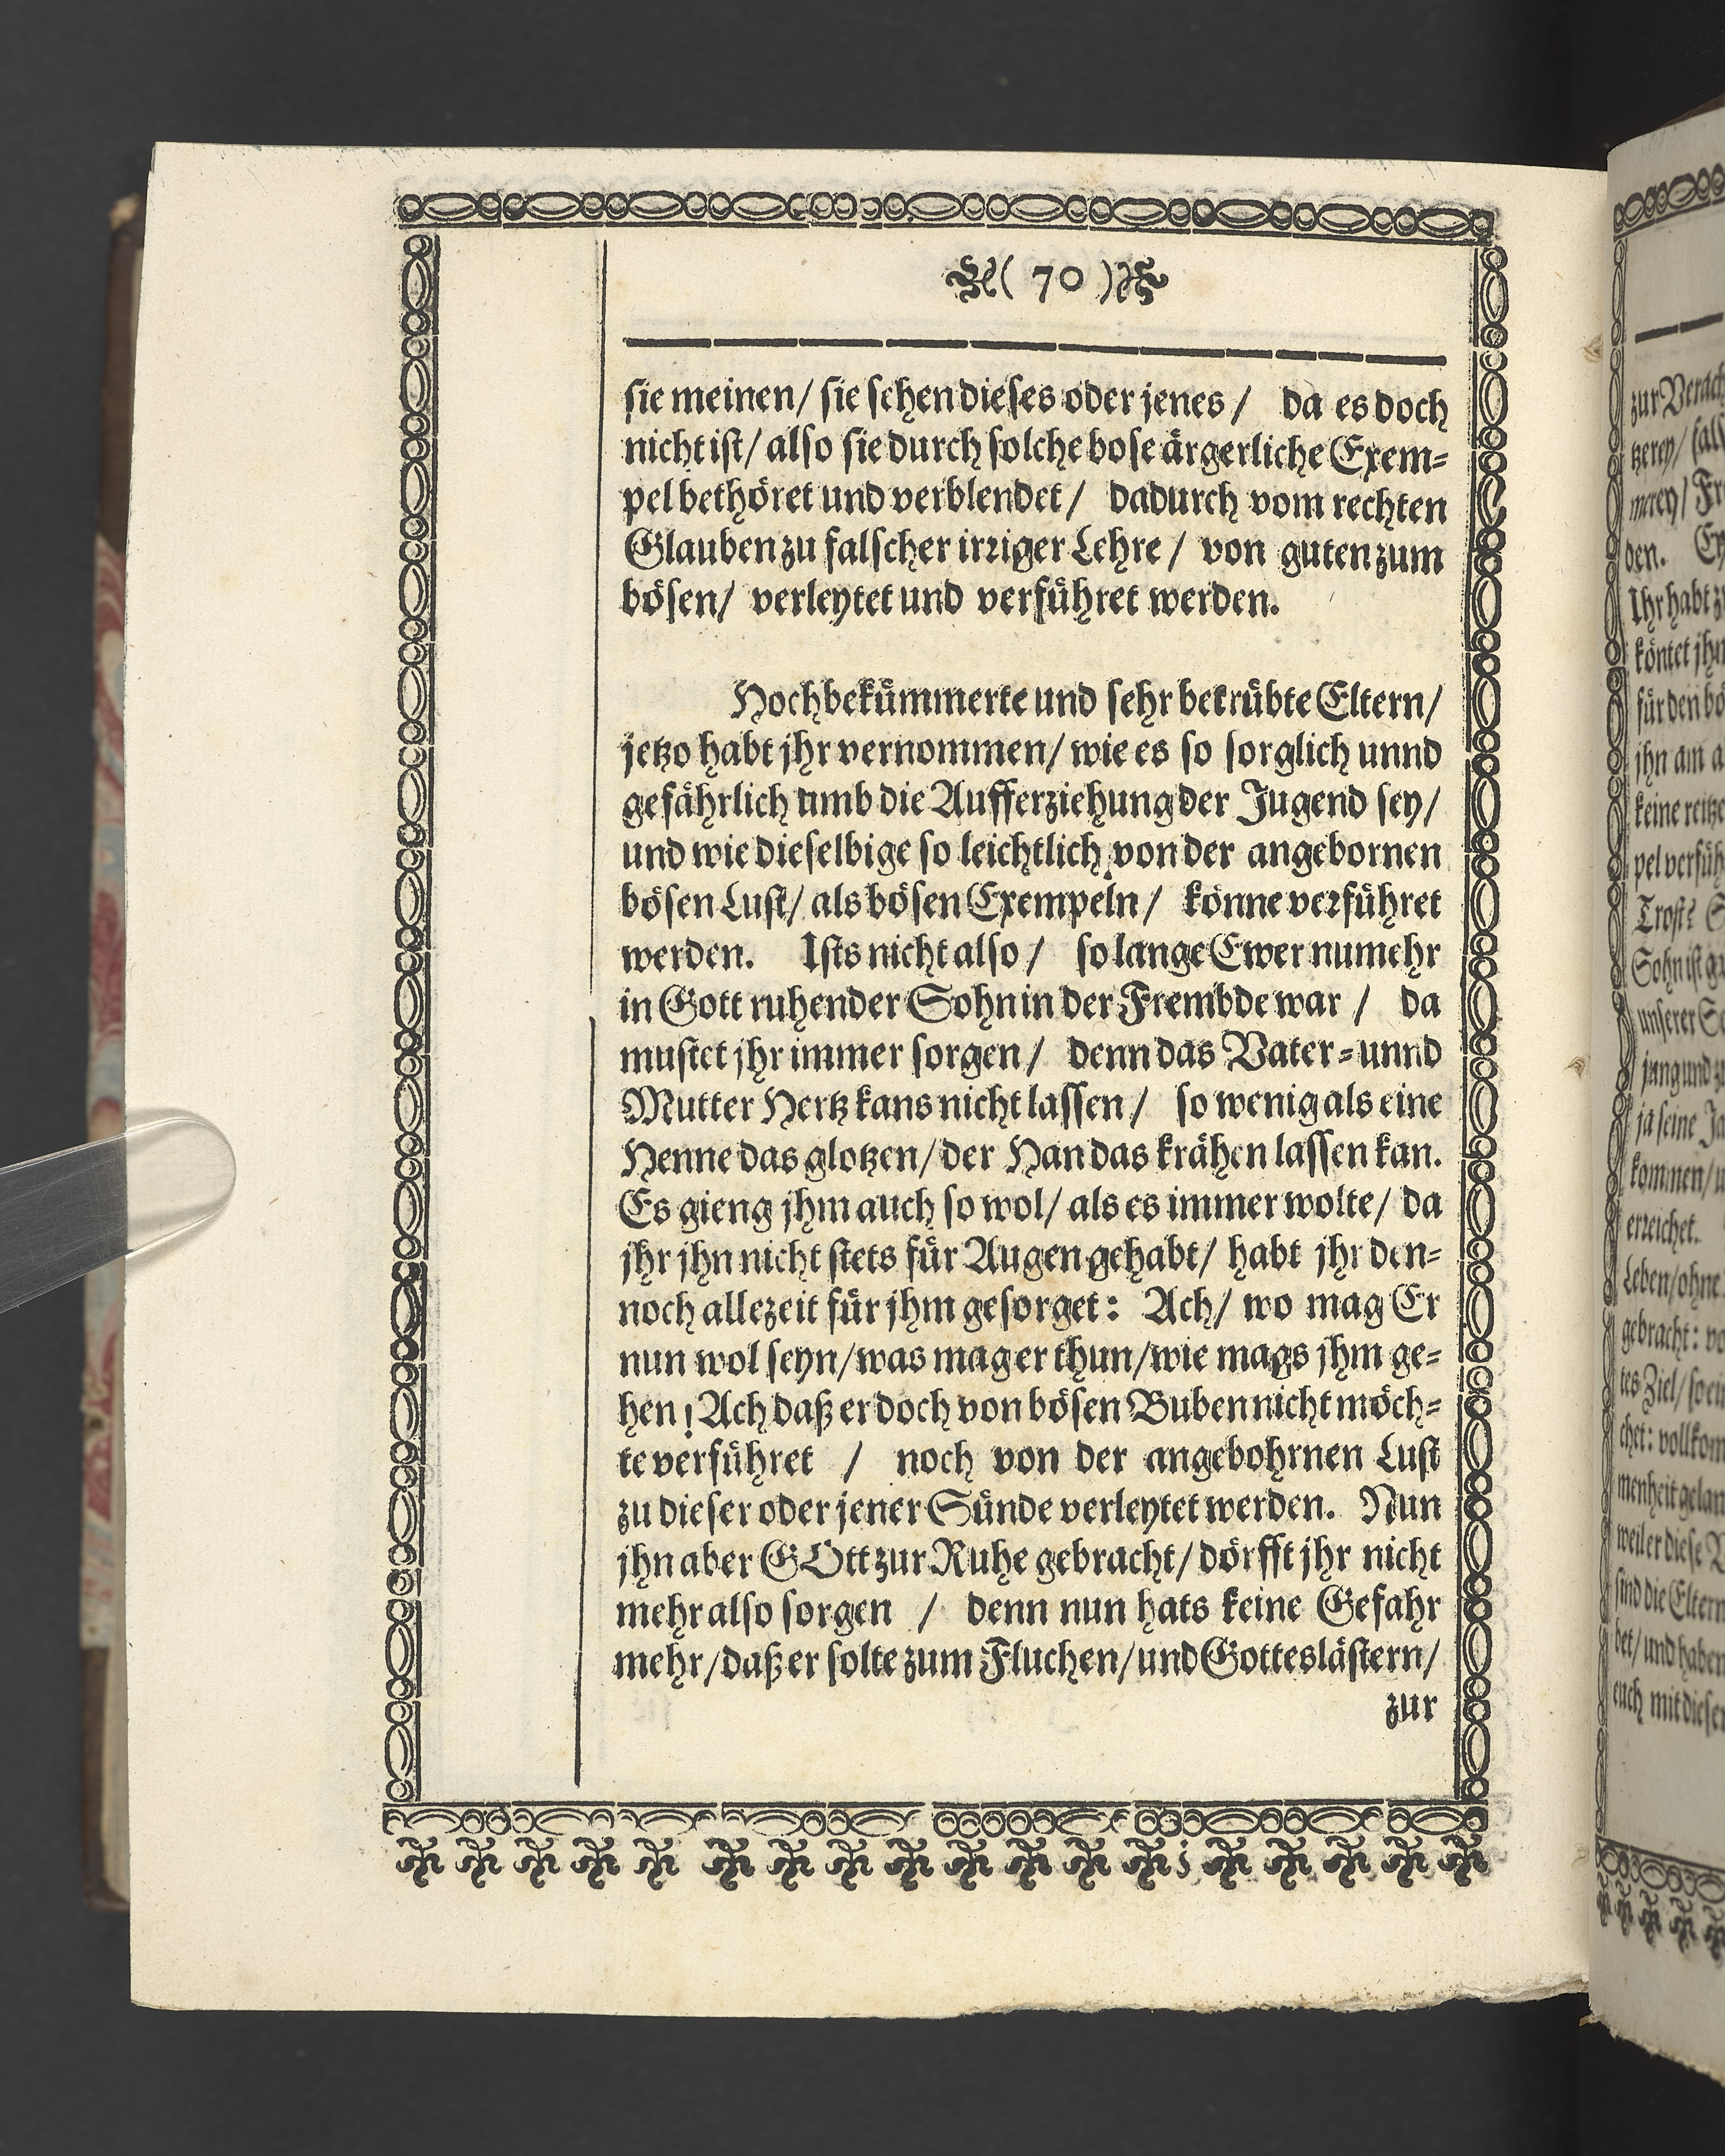 ( 70 )
sie meinen/ sie sehen dieses oder jenes/ da es doch
nicht ist/ also sie durch solche bose ärgerliche Exem-
pel bethöret und verblendet/ dadurch vom rechten
Glauben zu falscher irriger Lehre/ von guten zum
bösen/ verleytet und verführet werden.
Hochbekümmerte und sehr betrübte Eltern/
jetzo habt jhr vernommen/ wie es so sorglich unnd
gefährlich umb die Aufferziehung der Jugend sey/
und wie dieselbige so leichtlich von der angebornen
bösen Lust/ als bösen Exempeln/ könne verführet
werden. Ists nicht also/ so lange Ewer numehr
in Gott ruhender Sohn in der Frembde war/ da
mustet jhr immer sorgen/ denn das Vater-unnd
Mutter Hertz kans nicht lassen/ so wenig als eine
Henne das glotzen/ der Han das krähen lassen kan.
Es gieng jhm auch so wol/ als es immer wolte/ da
jhr jhn nicht stets für Augen gehabt/ habt jhr den-
noch allezeit für jhm gesorget: Ach/ wo mag Er
nun wol seyn/ was mag er thun/ wie mags jhm ge-
hen! Ach daß er doch von bösen Buben nicht möch-
te verführet / noch von der angebohrnen Lust
zu dieser oder jener Sünde verleytet werden. Nun
jhn aber GOtt zur Ruhe gebracht/ dörfft jhr nicht
mehr also sorgen / denn nun hats keine Gefahr
mehr/ daß er solte zum Fluchen/ und Gotteslästern/
zur
den.
Ihr habt
köntet jhn
für den
jhn am
keine
Trost?
Sohn ist
unserer
jung und
ja seine
kommen/
erreichet.
Leben/ ohne
gebracht:
tes Ziel/
chet:
weil er diese
sind die Eltern
bet/ und haben
euch mit